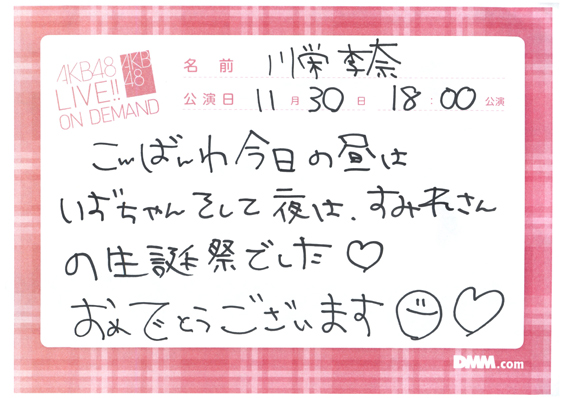 AKB48
LIVE!!
ON DEMAND
AKB
48
名前 川栄李奈
公演日 11月30日 18:00公演
こんばんわ今日の昼は
いずちゃんそして夜は、すみれさん
の生誕祭でした♡
おめでとうございます☺♡
DMM.com